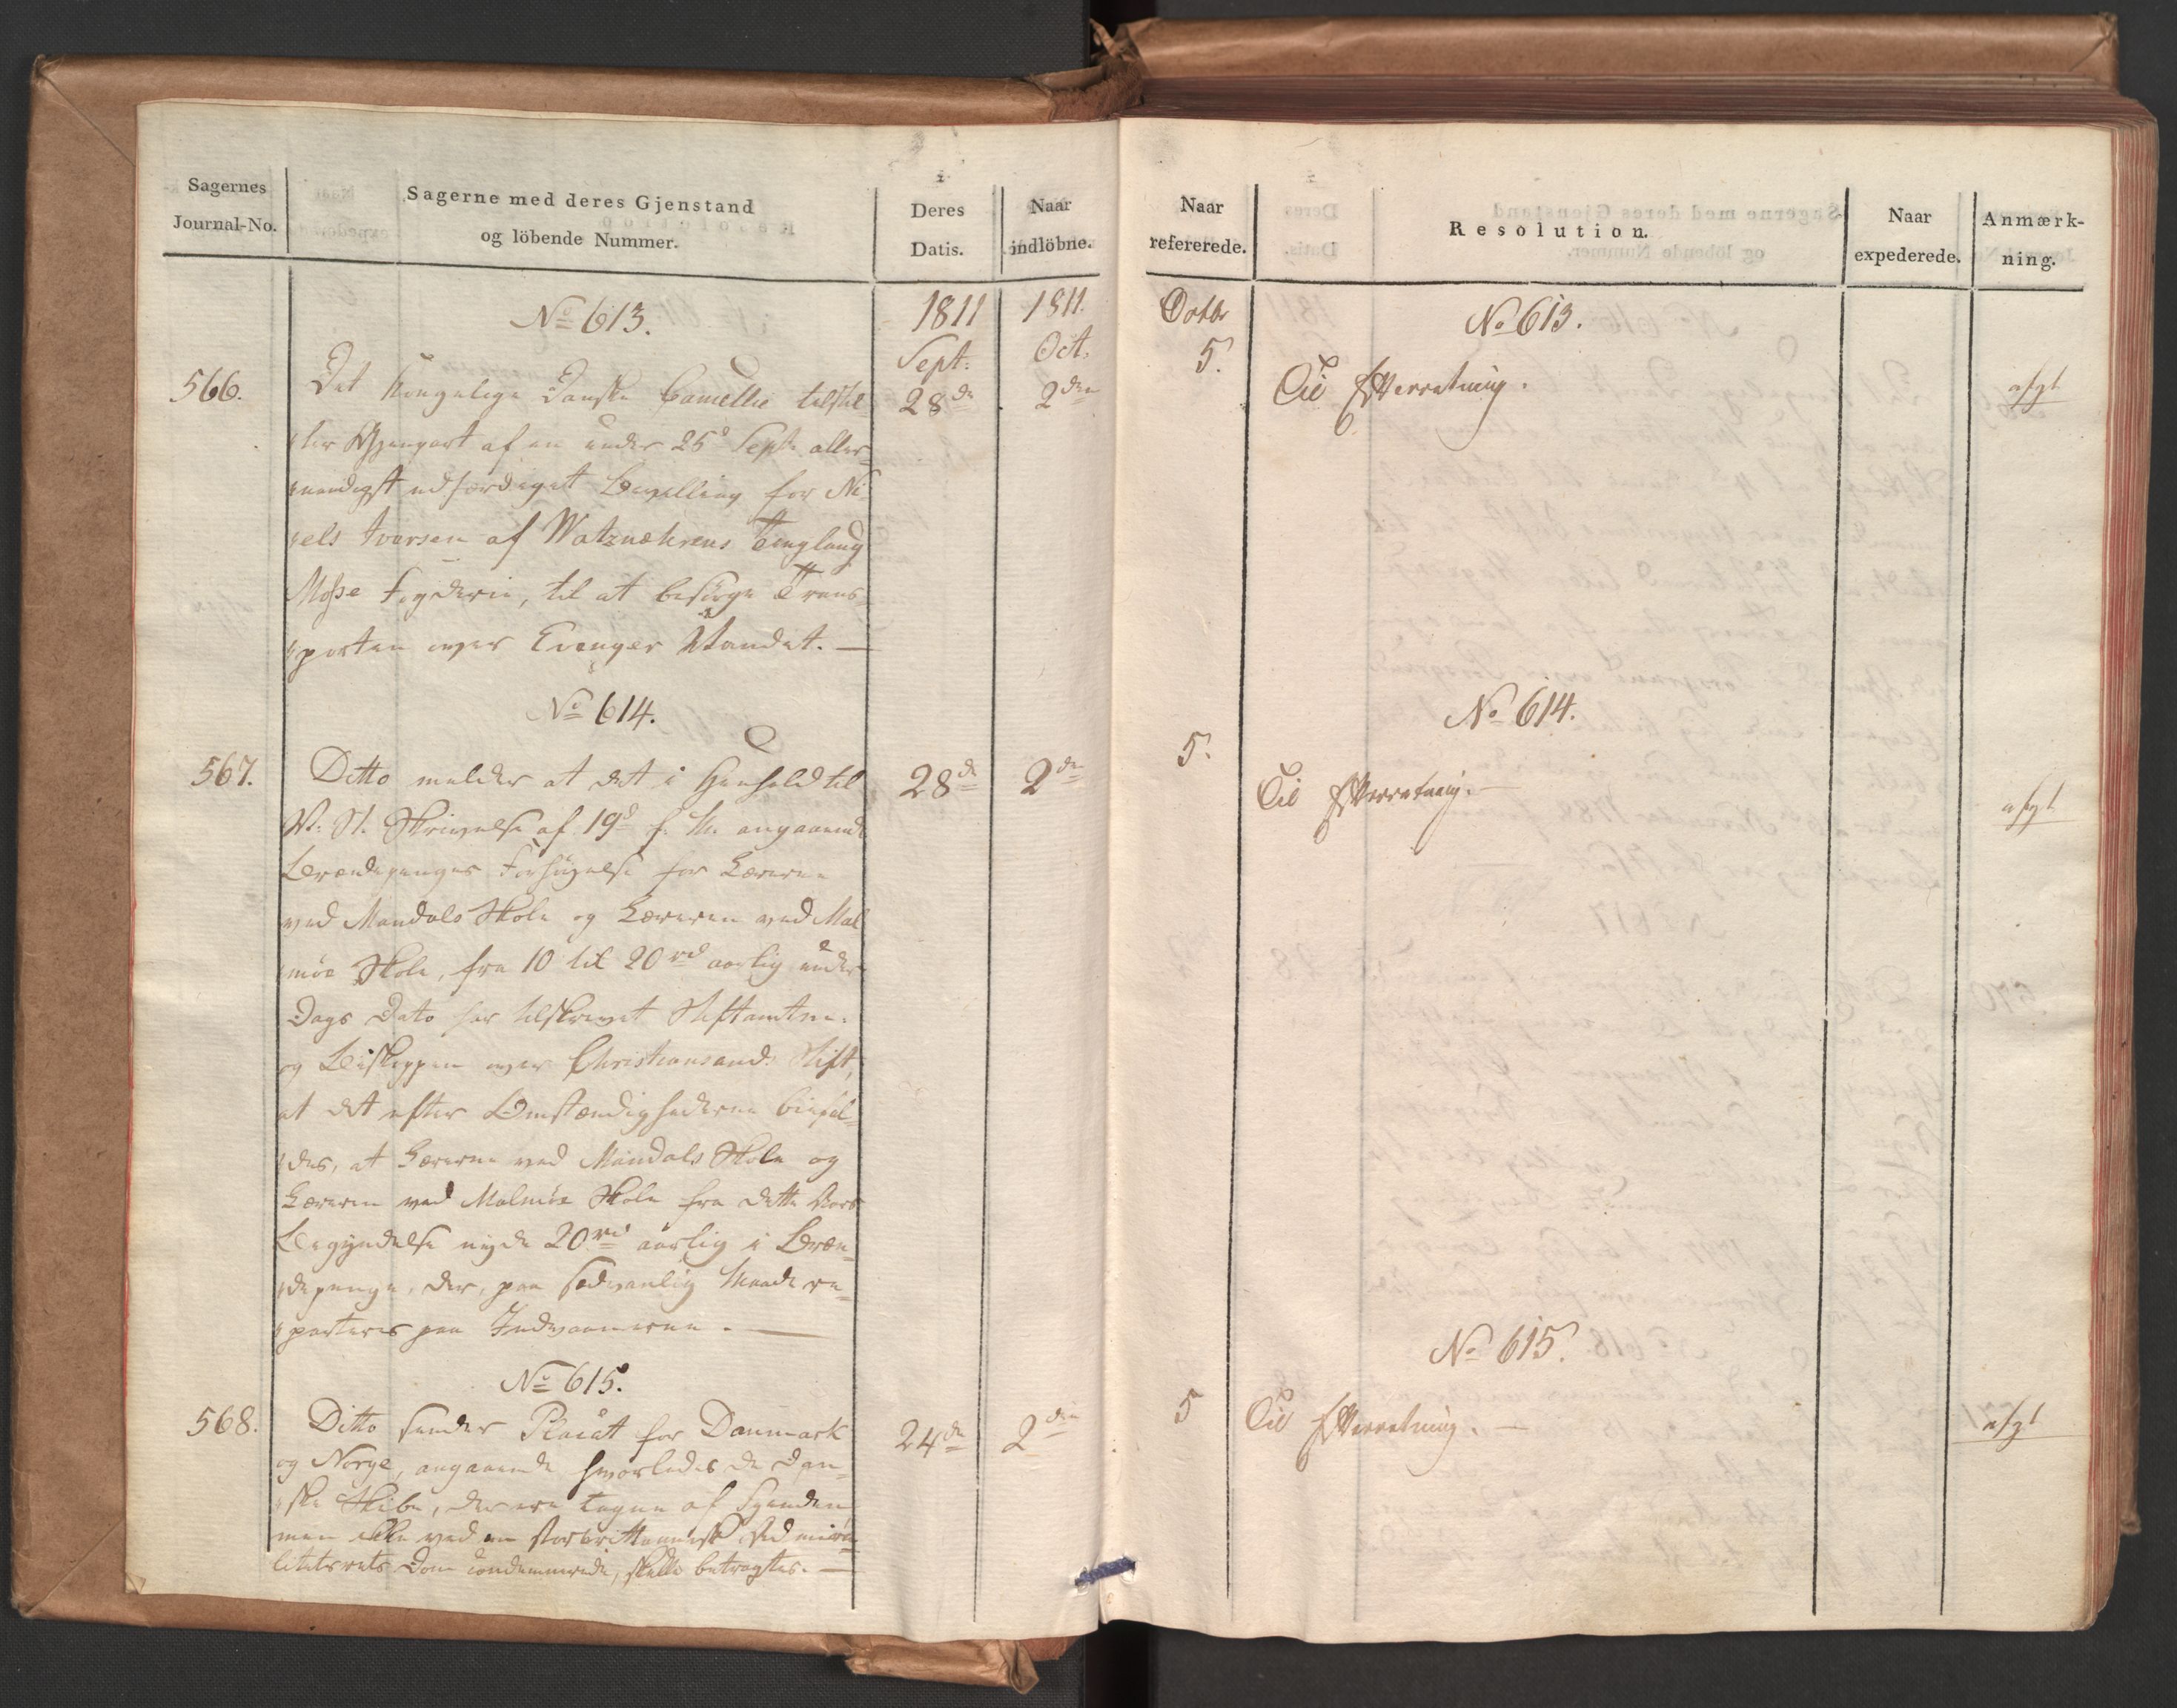 Sagernes
Journal-No.
Sagerne med deres Gjenstand
og löbende Nummer.
Deres
Datis.
Naar
indlöbne.
No 613.
1811
Sept:
28de
1811.
Oct.
2den
566.
Det Kongelige Danske Cancellie tilstil-
ler Gjenpart af en under 25d Sept. aller-
naadigst udfærdiget Bevilling for Ni-
els Iversen af
Fogderie, til at besörge Trans-
porten over Evanger Vandet. —
No 614.
567.
28de
2den
Ditto melder at det i Henhold til
Skrivelse af 19d f. M. angaaende
Brændepenges Forhöielse for Læreren
ved Mandals Skole og Læreren ved Mal
möe Skole, fra 10 til 20 rd aarlig under
Dags Dato har tilskrevet Stiftamtm.
og Biskoppen over Christiansands Stift,
at det efter Omstændighederne bifal-
des, at Læreren ved Mandals Skole og
Læreren ved Malmöe Skole fra dette Aars
Begyndelse nyde 20 rd aarlig i Bræn-
depenge, der, paa sædvanlig Maade re-
parteres paa Indvaanerne. —
No 615.
568.
24de
2den
Ditto sender Placat for Danmark
og Norge, angaaende hvorledes de Dan-
ske Skibe, der ere tagne af Fienden
men ikke ved en storbrittannisk Admira-
litetsrets Dom condemnerede, skulle betragtes. —
Naar
refererede.
Resolution.
Naar
expederede.
Anmærk-
ning.
Octbr
5.
No 613.
Til Efterretning.
afgt
No 614.
5.
Til Efterretning. —
afgt
No 615.
5
Til Efterretning. —
afgt